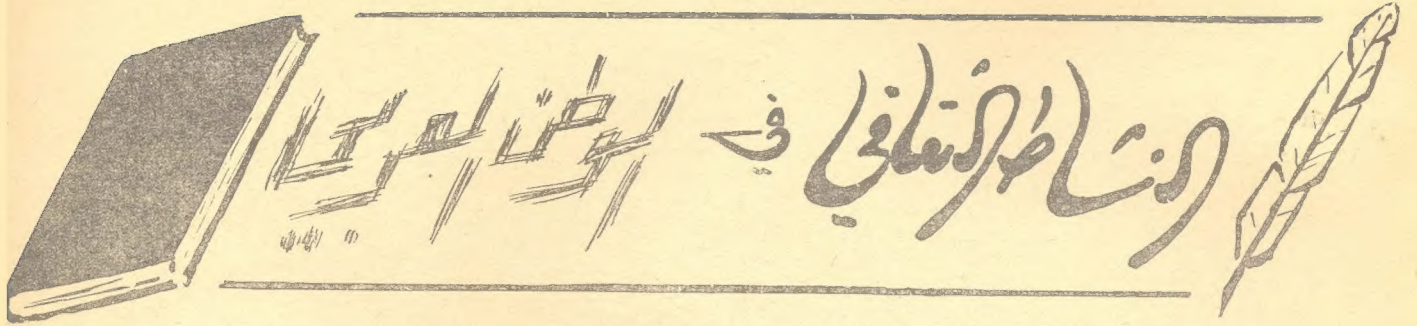 النشاط الثقافي في الوطن العربي